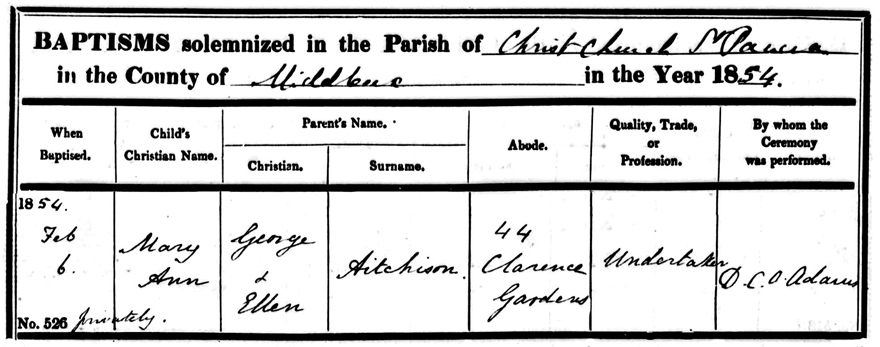 BAPTISMS solemnized in the Parish of Christ Church St Pancras
in the County of Middlesex in the Year 1854.
When Baptised.
Child's Christian Name.
Parent's Name.
Christian.
Surname.
Abode.
Quality, Trade, or Profession.
By whom the Ceremony was performed.
1854.
Feb
6.
Mary
Ann
George
&
Ellen
Aitchison.
44
Clarence
Gardens
Undertaker
D. C. O. Adams
No. 526 privately.